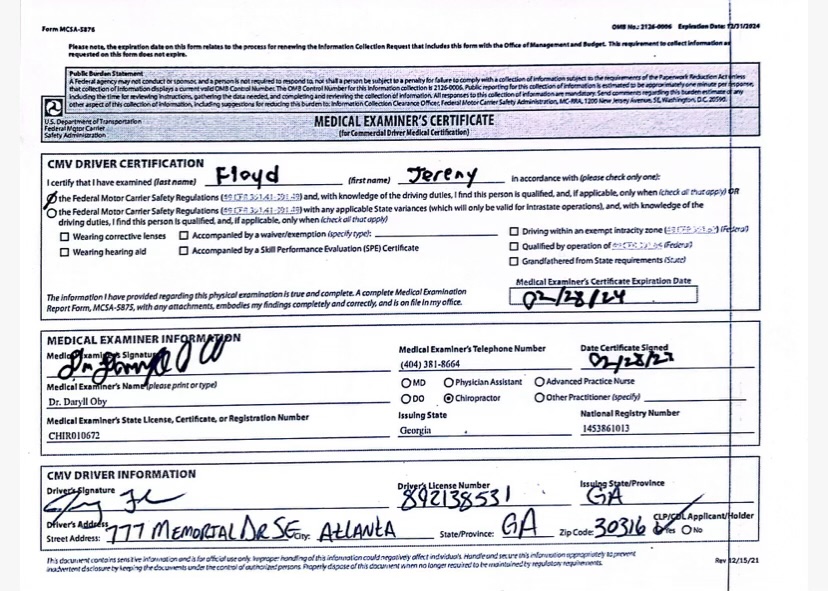 Form MCSA-5876
OMB No.: 2126-0006 Expiration Date: 12/31/2024
Please note, the expiration date on this form relates to the process for renewing the Information Collection Request that includes this form with the Office of Management and Budget. This requirement to collect information as
requested on this form does not expire.
Public Burden Statement
A Federal agency may not conduct or sponsor, and a person is not required to respond to, nor shall a person be subject to a penalty for failure to comply with a collection of information subject to the requirements of the Paperwork Reduction Act unless
that collection of information displays a current valid OMB Control Number. The OMB Control Number for this information collection is 2126-0006. Public reporting for this collection of information is estimated to be approximately one minute per response,
including the time for reviewing instructions, gathering the data needed, and completing and reviewing the collection of information. All responses to this collection of information are mandatory. Send comments regarding this burden estimate or any
other aspect of this collection of information, including suggestions for reducing this burden to: Information Collection Clearance Officer, Federal Motor Carrier Safety Administration, MC-RRA, 1200 New Jersey Avenue, SE, Washington, D.C. 20590.
U.S. Department of Transportation
Federal Motor Carrier
Safety Administration
MEDICAL EXAMINER'S CERTIFICATE
(for Commercial Driver Medical Certification)
CMV DRIVER CERTIFICATION
I certify that I have examined (last name) Floyd (first name) Jeremy in accordance with (please check only one):
the Federal Motor Carrier Safety Regulations and, with knowledge of the driving duties, I find this person is qualified, and, if applicable, only when (check all that apply) OR
the Federal Motor Carrier Safety Regulations with any applicable State variances (which will only be valid for intrastate operations), and, with knowledge of the
driving duties, I find this person is qualified, and, if applicable, only when (check all that apply)
Wearing corrective lenses Accompanied by a waiver/exemption (specify type): Driving within an exempt intracity zone (Federal)
Wearing hearing aid Accompanied by a Skill Performance Evaluation (SPE) Certificate Qualified by operation of (Federal)
Grandfathered from State requirements (State)
Medical Examiner's Certificate Expiration Date
The information I have provided regarding this physical examination is true and complete. A complete Medical Examination
Report Form, MCSA-5875, with any attachments, embodies my findings completely and correctly, and is on file in my office.
02/28/24
MEDICAL EXAMINER INFORMATION
Medical Examiner's Signature Medical Examiner's Telephone Number Date Certificate Signed
(404) 381-8664
Medical Examiner's Name (please print or type) MD Physician Assistant Advanced Practice Nurse
Dr. Daryll Oby DO Chiropractor Other Practitioner (specify)
Medical Examiner's State License, Certificate, or Registration Number Issuing State National Registry Number
CHIR010672 Georgia 1453861013
CMV DRIVER INFORMATION
Driver's Signature Driver's License Number Issuing State/Province
892138531 GA
Driver's Address CLP/CDL Applicant/Holder
Street Address: 777 MEMORIAL DR SE City: ATLANTA State/Province: GA Zip Code: 30316 Yes No
This document contains sensitive information and is for official use only. Improper handling of this information could negatively affect individuals. Handle and secure this information appropriately to prevent
inadvertent disclosure by keeping the documents under the control of authorized persons. Properly dispose of this document when no longer required to be maintained by regulatory requirements.
Rev 12/15/21